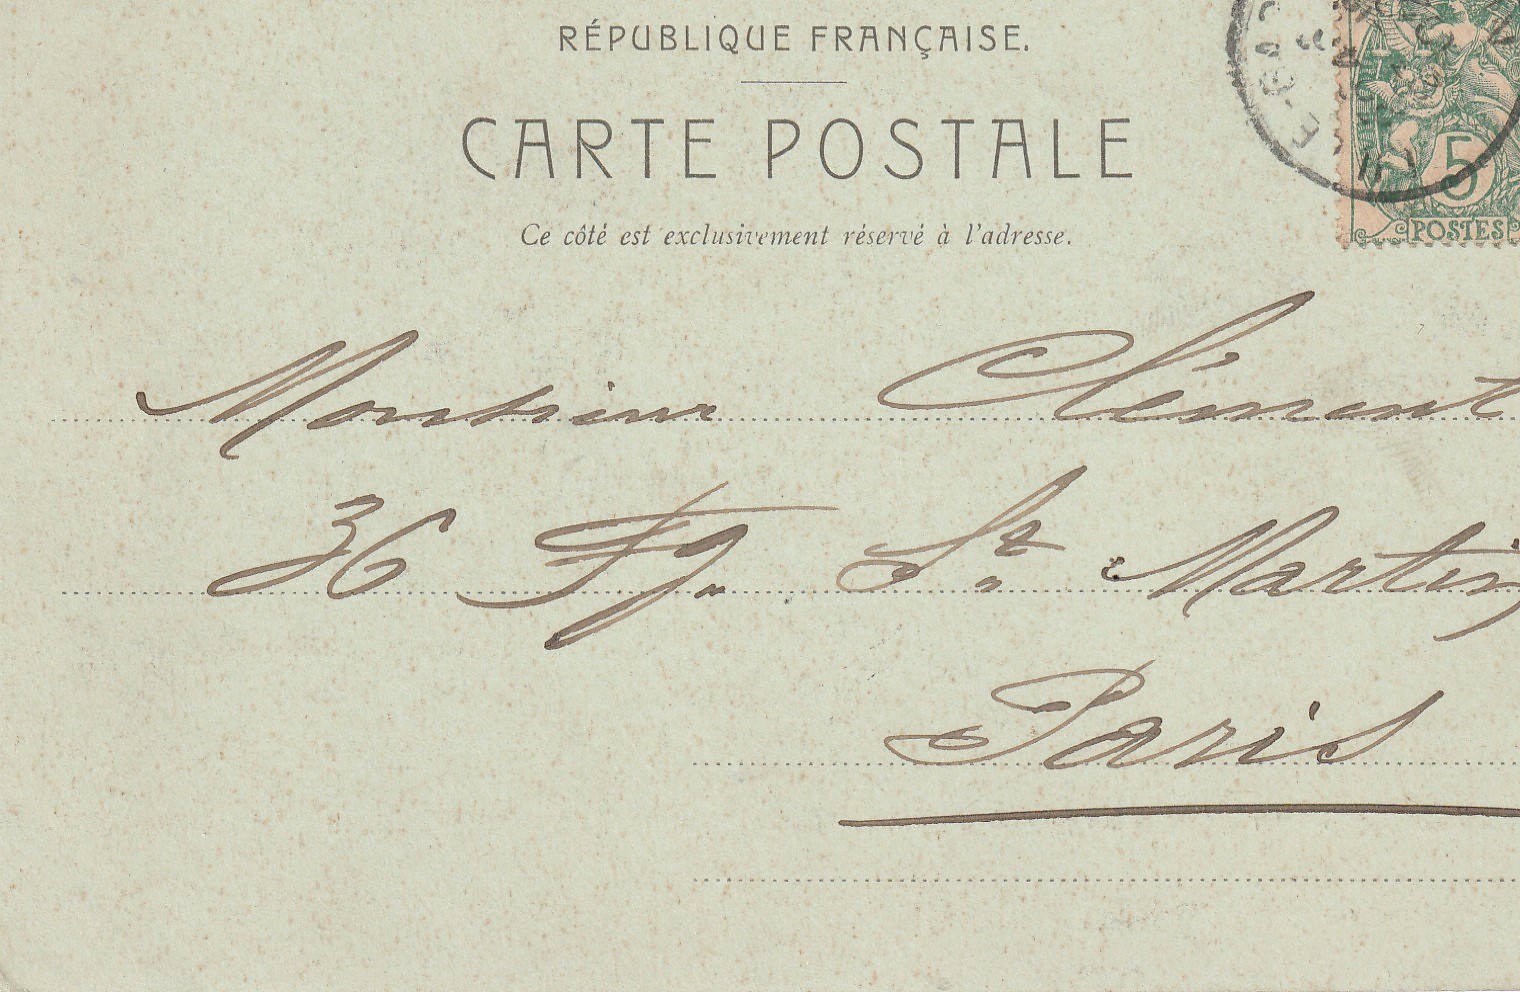 RÉPUBLIQUE FRANÇAISE.
CARTE POSTALE
Ce côté est exclusivement réservé à l'adresse.
5
POSTES
Monsieur Clément
36 Fg. St. Martin
Paris